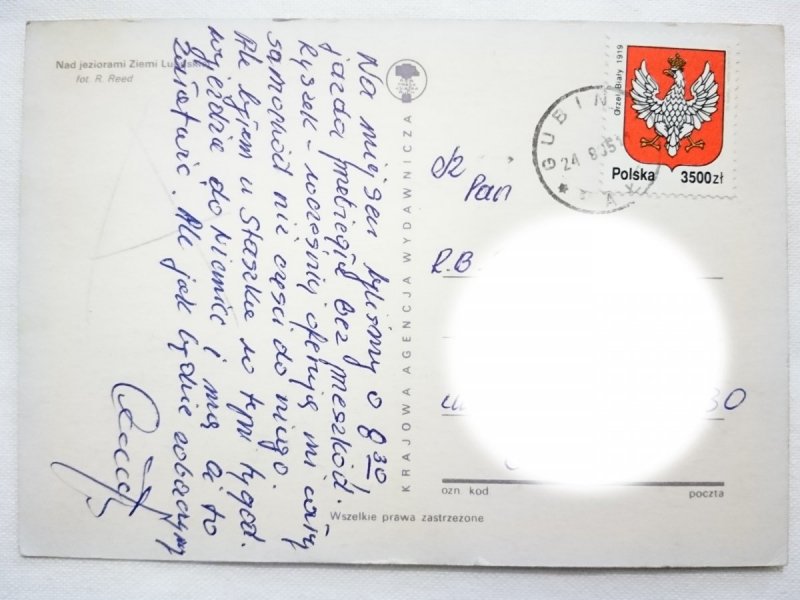 Nad jeziorami Ziemi
fot. R. Reed
Na miejscu byliśmy o 8 30
jazda przebiegła bez przeszkód.
Ryszek - wcześniej oferują mi cały
samochód niż części do niego.
Ale byłem u Staszka w tym tygod.
wyjeżdża do Niemiec i ma ci to
załatwić. Ale jak będzie zobaczymy
KRAJOWA AGENCJA WYDAWNICZA
Wszelkie prawa zastrzeżone
Orzeł Biały 1919
Polska 3500zł
GUBIN
24
Pan
R.B.
30
ozn. kod
poczta